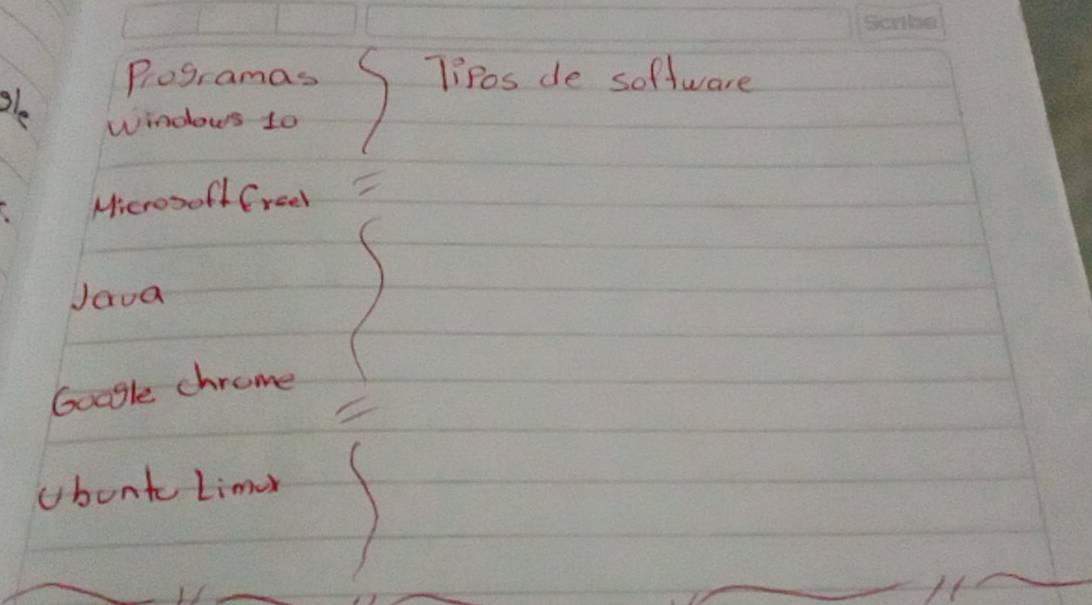 Scribe
Programas Tipos de software
Windows 10
Microsoft Excel
Java
Google chrome
Ubuntu Linux
gle